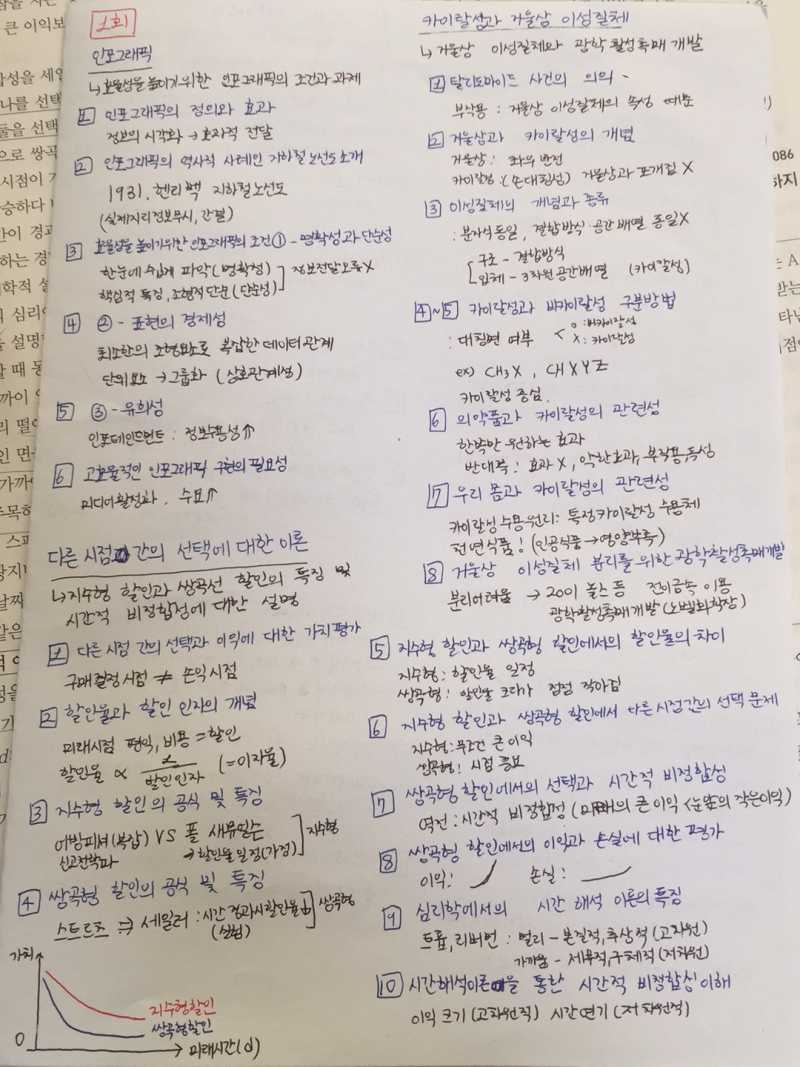 1회
인포그래픽
↳ 효율성을 높이기 위한 인포그래픽의 조건과 과제
1 인포그래픽의 정의와 효과
정보의 시각화 → 효과적 전달
2 인포그래픽의 역사적 사례인 지하철 노선도 소개
1931. 헨리 벡 지하철 노선도
(실제 지리정보 무시, 간결)
3 효율성을 높이기 위한 인포그래픽의 조건① - 명확성과 단순성
한눈에 쉽게 파악 (명확성)
핵심적 특징, 조형적 단순 (단순성)
정보전달오류 X
4 ② - 표현의 경제성
최소한의 조형요소로 복잡한 데이터 관계
단위요소 → 그룹화 (상호관계성)
5 ③ - 유희성
인포테인먼트 : 정보수용성↑
6 고효율적인 인포그래픽 구현의 필요성
미디어 활성화. 수요↑
다른 시점 간의 선택에 대한 이론
↳ 지수형 할인과 쌍곡선 할인의 특징 및
시간적 비정합성에 대한 설명
1 다른 시점 간의 선택과 이익에 대한 가치평가
구매결정시점 ≠ 손익시점
2 할인율과 할인 인자의 개념
미래시점 편익, 비용 = 할인
할인율 ∝ 1/할인인자 (=이자율)
3 지수형 할인의 공식 및 특징
어빙피셔(복잡) VS 폴 새뮤얼슨
신고전학파 → 할인율 일정(가정)
지수형
4 쌍곡형 할인의 공식 및 특징
스트로츠 ⇒ 세일러 : 시간 경과시 할인율↓
(실험)
쌍곡형
가치
지수형할인
쌍곡형할인
0
미래시간(d)
카이랄성과 거울상 이성질체
↳ 거울상 이성질체와 광학 활성촉매 개발
1 탈리도마이드 사건의 의의
부작용 : 거울상 이성질체의 속성
2 거울상과 카이랄성의 개념
거울상 : 좌우 반전
카이랄성 : (손대칭성) 거울상과 포개짐 X
3 이성질체의 개념과 종류
: 분자식 동일, 결합방식·공간 배열 동일X
구조 - 결합방식
입체 - 3차원 공간배열 (카이랄성)
4~5 카이랄성과 비카이랄성 구분방법
: 대칭면 여부 < o : 비카이랄성
x : 카이랄성
ex) CH3X , CHXYZ
카이랄성 중심.
6 의약품과 카이랄성의 관련성
한쪽만 원하는 효과
반대쪽 : 효과 X, 약한효과, 부작용, 독성
7 우리 몸과 카이랄성의 관련성
카이랄성 수용원리 : 특정 카이랄성 수용체
천연식품! (인공식품→영양부족)
8 거울상 이성질체 분리를 위한 광학활성촉매개발
분리어려움 → 2001 놀스 등 전이금속 이용
광학활성촉매개발 (노벨화학상)
5 지수형 할인과 쌍곡형 할인에서의 할인율의 차이
지수형 : 할인율 일정
쌍곡형 : 할인율 크다가 점점 작아짐
6 지수형 할인과 쌍곡형 할인에서 다른 시점간의 선택 문제
지수형 : 무조건 큰 이익
쌍곡형 : 시점 중요
7 쌍곡형 할인에서의 선택과 시간적 비정합성
역전 : 시간적 비정합성 (미래의 큰 이익 < 눈앞의 작은이익)
8 쌍곡형 할인에서의 이익과 손실에 대한 평가
이익 : 손실 :
9 심리학에서의 시간 해석 이론의 특징
트롭, 리버먼 : 멀리 - 본질적, 추상적 (고차원)
가까움 - 세부적, 구체적 (저차원)
10 시간해석이론을 통한 시간적 비정합성 이해
이익 크기 (고차원적) 시간 연기 (저차원적)